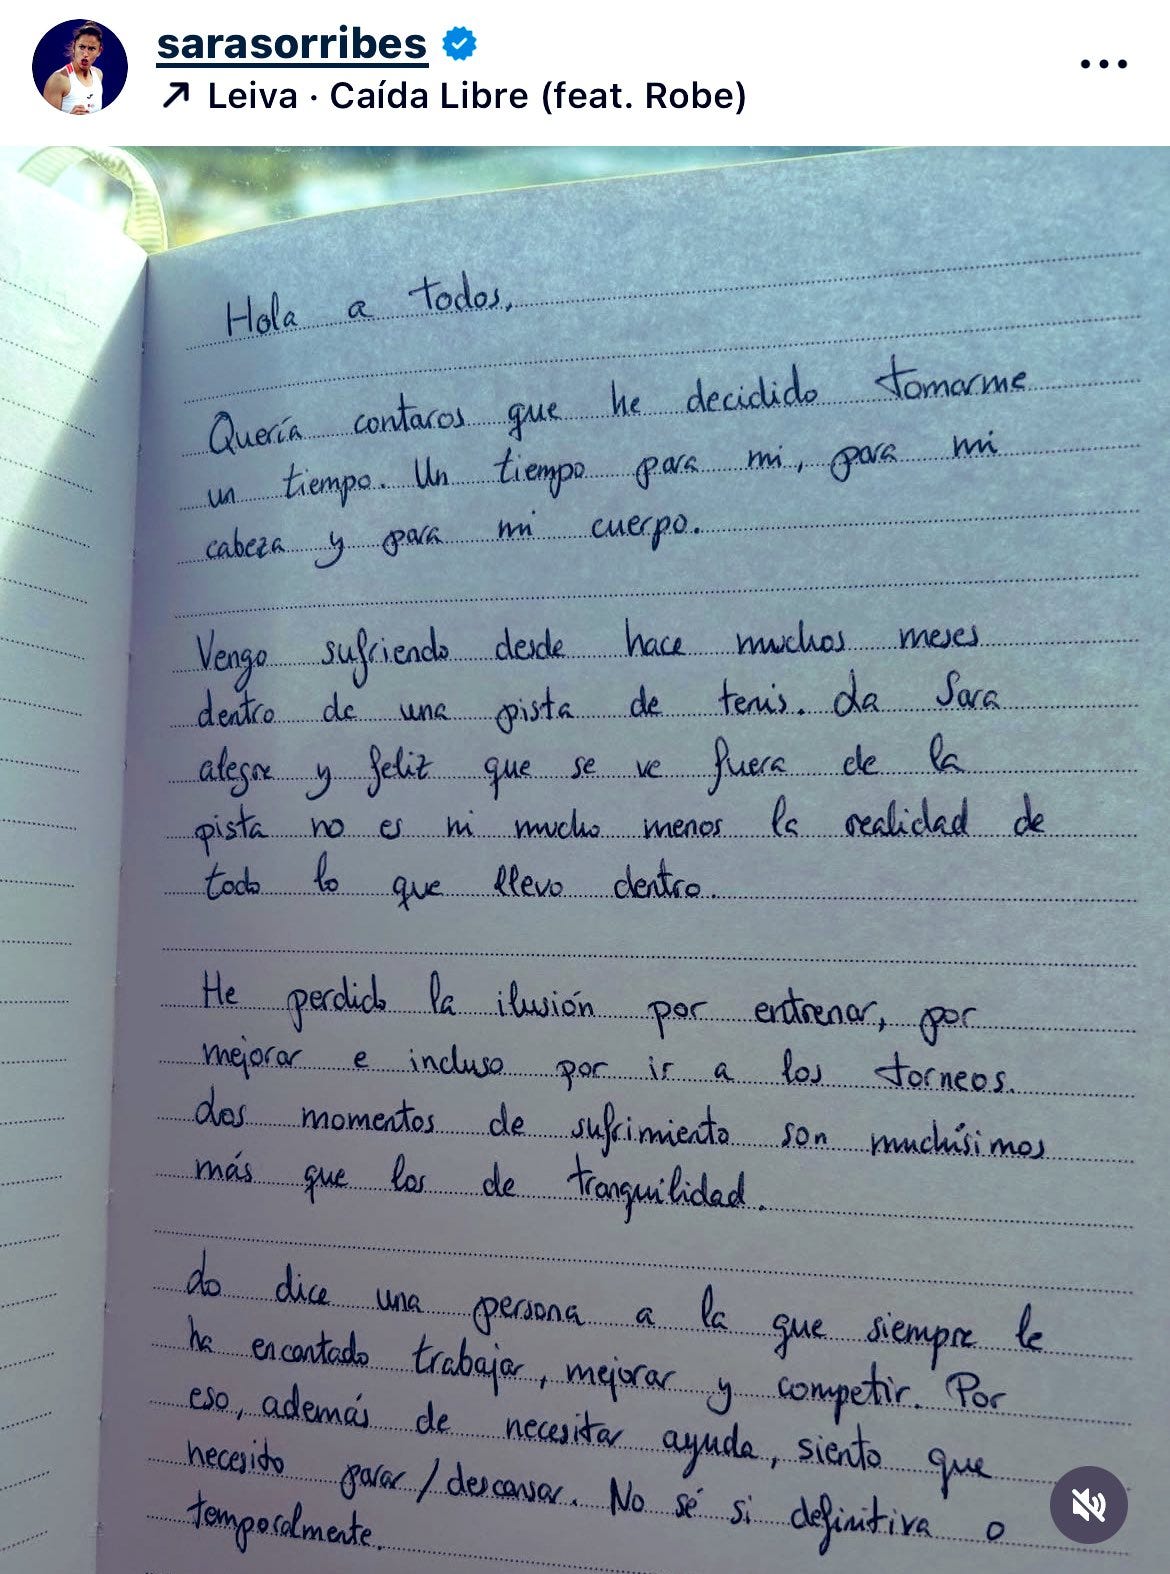 sarasorribes
Leiva · Caída Libre (feat. Robe)
Hola a todos,
Quería contaros que he decidido tomarme
un tiempo. Un tiempo para mi, para mi
cabeza y para mi cuerpo.
Vengo sufriendo desde hace muchos meses
dentro de una pista de tenis. La Sara
alegre y feliz que se ve fuera de la
pista no es ni mucho menos la realidad de
todo lo que llevo dentro.
He perdido la ilusión por entrenar, por
mejorar e incluso por ir a los torneos.
Los momentos de sufrimiento son muchísimos
más que los de tranquilidad.
Lo dice una persona a la que siempre le
ha encantado trabajar, mejorar y competir. Por
eso, además de necesitar ayuda, siento que
necesito parar/descansar. No sé si definitiva o
temporalmente.